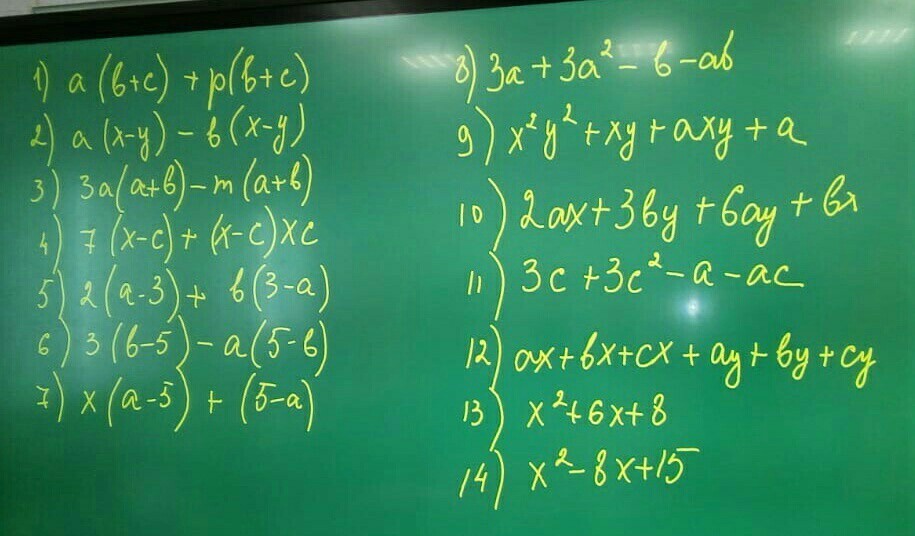 1) a(в+c)+p(в+c)
2) a(x-y)-в(x-y)
3) 3a(a+в)-m(a+в)
4) 7(x-c)+(x-c)xc
5) 2(a-3)+ в(3-a)
6) 3(в-5)-a(5-в)
7) x(a-5)+(5-a)
8) 3a+3a²-в-aв
9) x²y²+xy+axy+a
10) 2ax+3вy+6ay+вx
11) 3c+3c²-a-ac
12) ax+вx+cx+ay+вy+cy
13) x²+6x+8
14) x²-8x+15